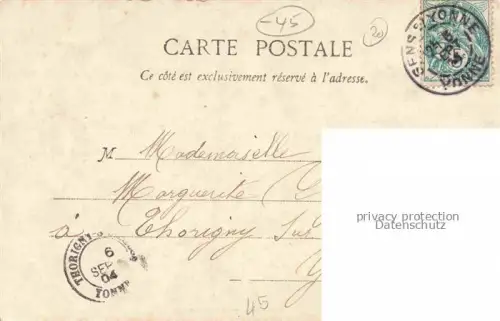 -45
20
CARTE POSTALE
Ce côté est exclusivement réservé à l'adresse.
SENS S YONNE
YONNE
M Mademoiselle
Marguerite
à Thorigny Sur
privacy protection
Datenschutz
THORIGNY
6
SEP
04
YONNE
45